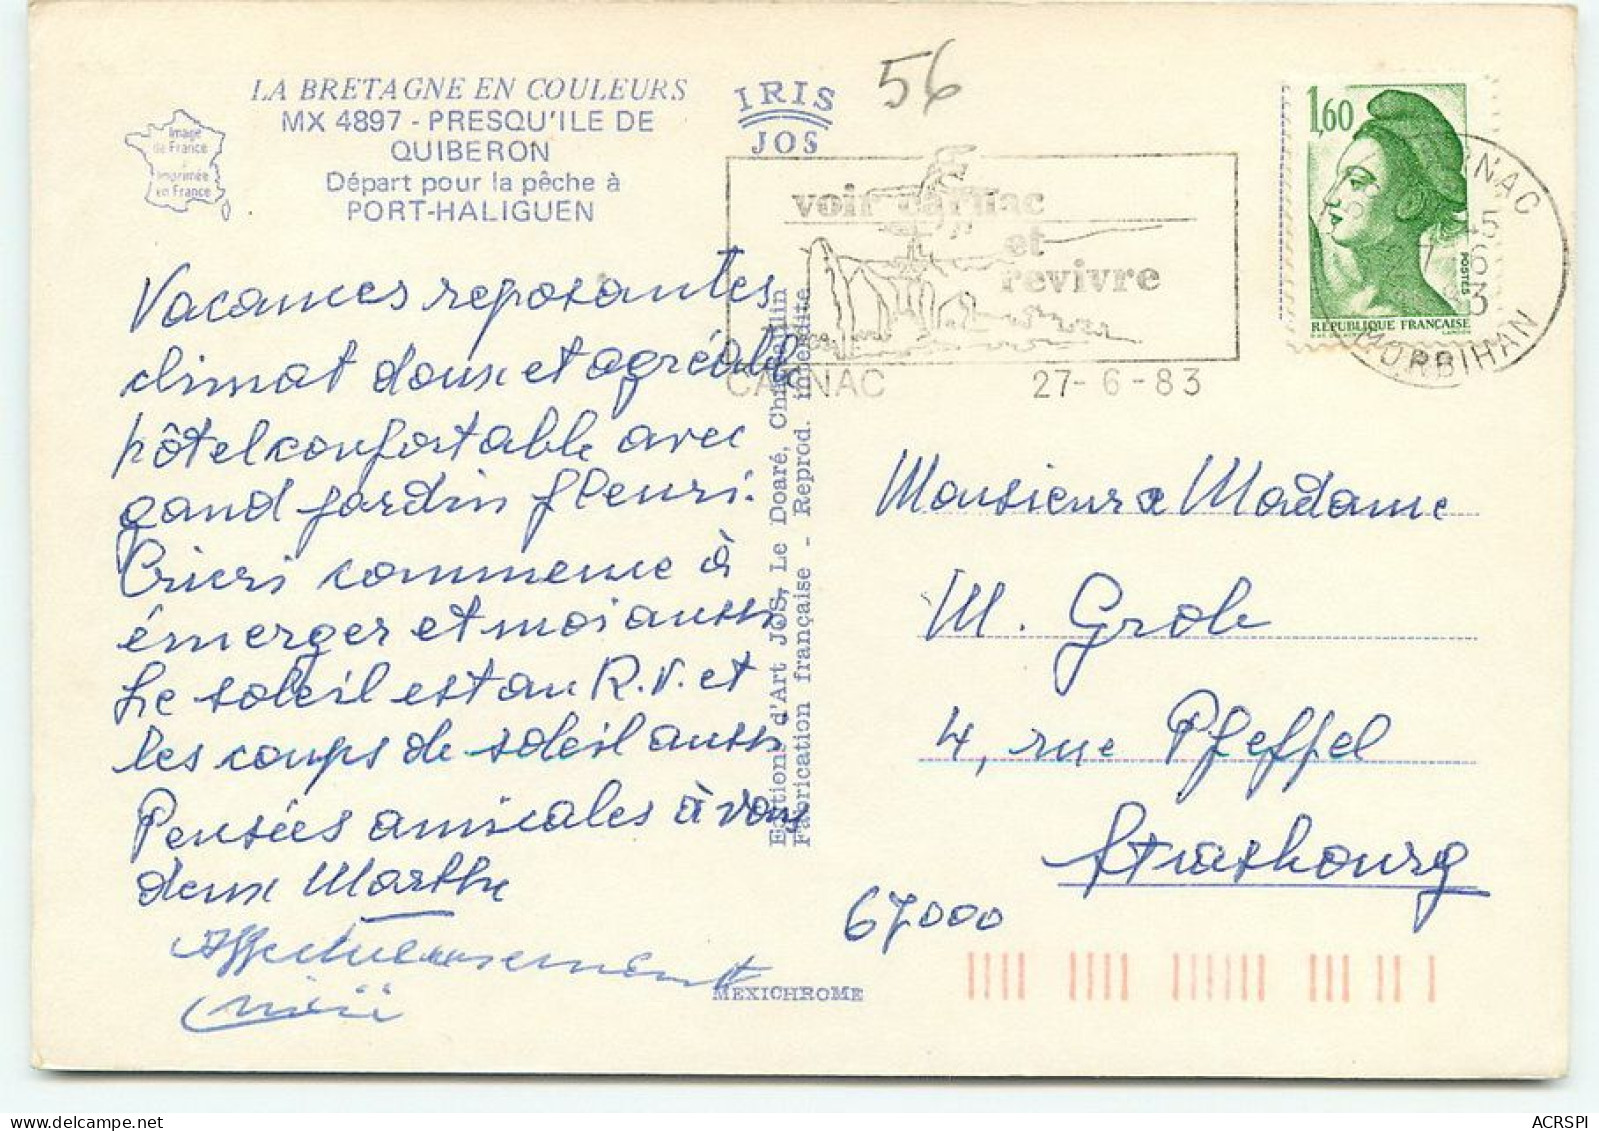 LA BRETAGNE EN COULEURS
MX 4897 - PRESQU'ILE DE
QUIBERON
Départ pour la pêche à
PORT-HALIGUEN
Image
de France
imprimée
en France
IRIS
JOS
56
voir carnac
et
revivre
CARNAC 27-6-83
1,60
POSTES
RÉPUBLIQUE FRANÇAISE
MORBIHAN
Vacances reposantes
climat doux et agréable
hôtel confortable avec
gand jardin fleuri.
commence à
émerger et moi aussi
Le soleil est au R.V. et
les coups de soleil aussi
Pensées amicales à vous
deux Marthe
Affectueusement
Editions d'Art JOS, Le Doaré, Châteaulin
Fabrication française - Reprod. interdite
Monsieur & Madame
M. Grob
4, rue Pfeffel
Strasbourg
67000
MEXICHROME
ACRSPI